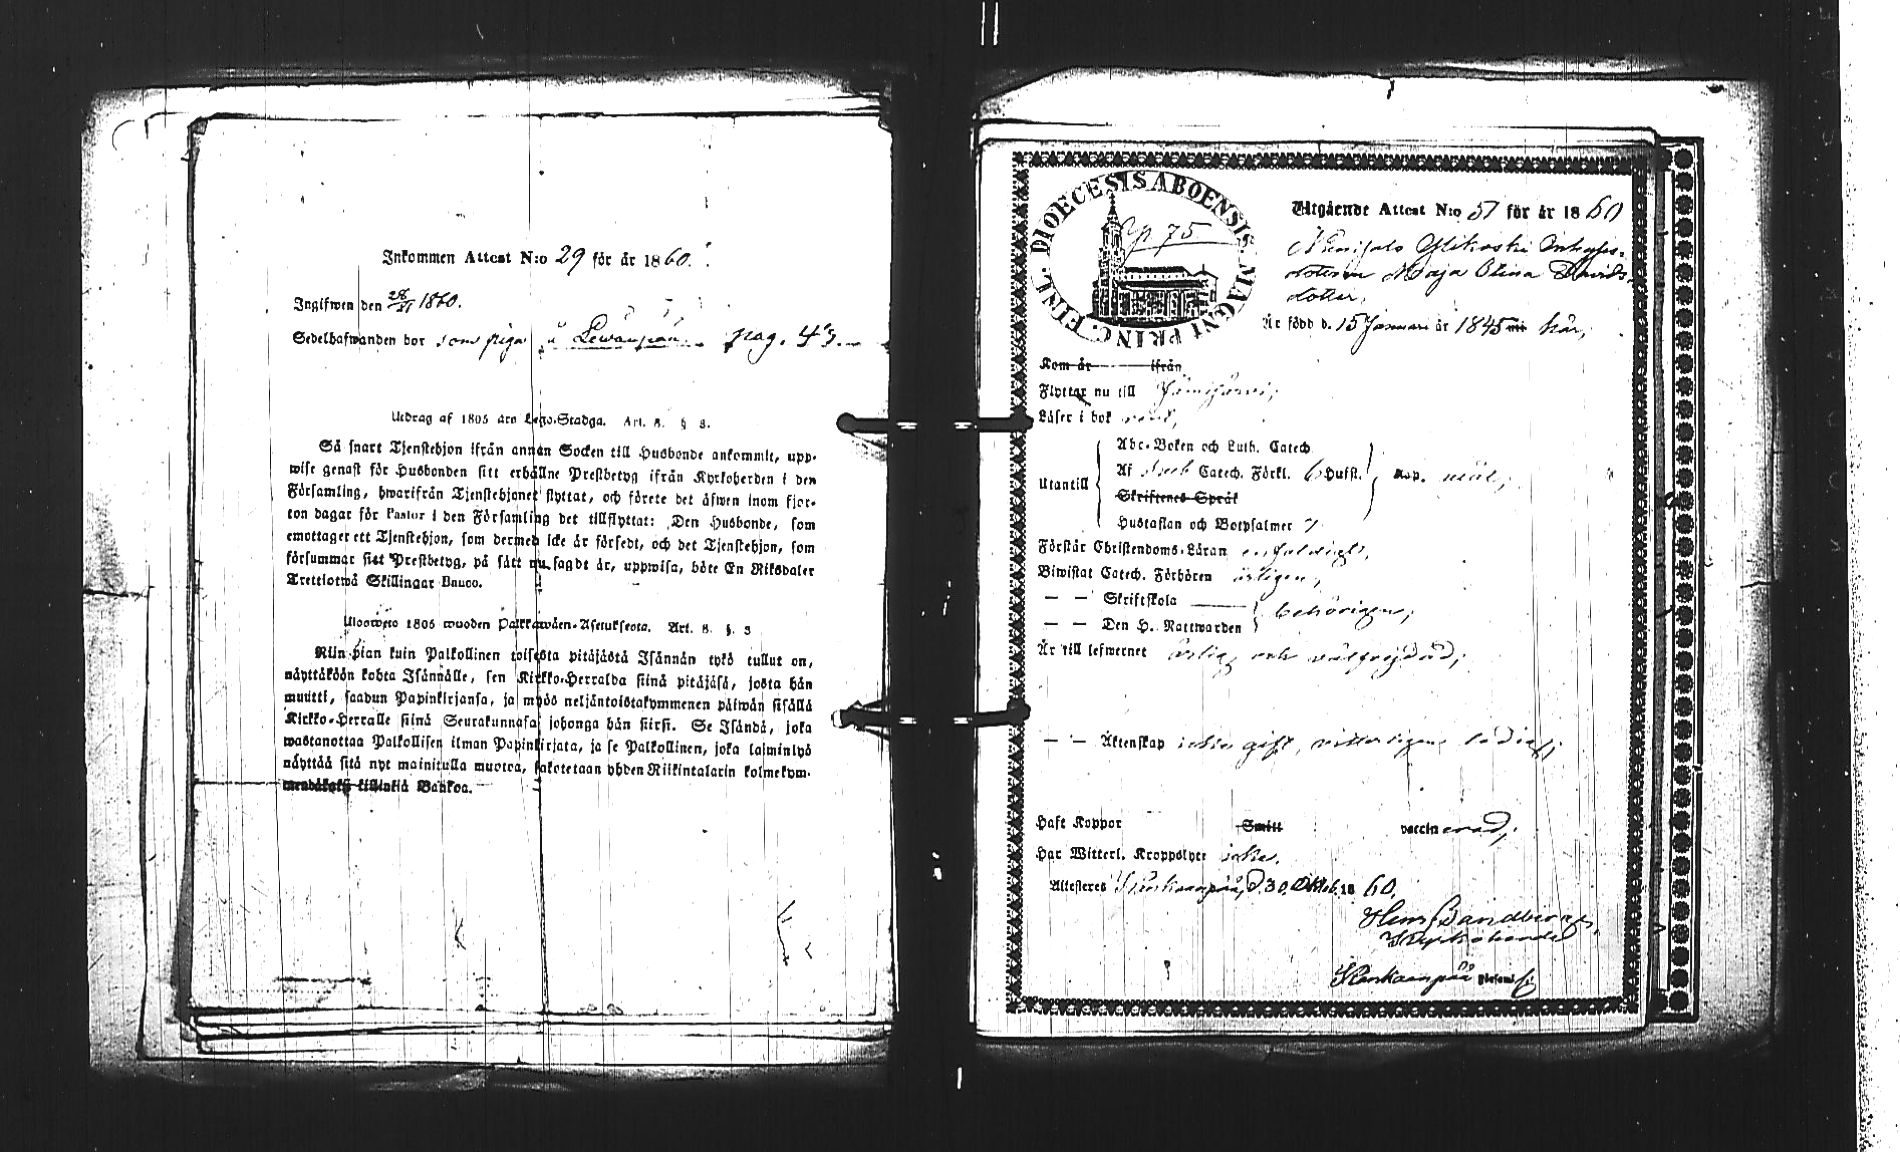 Inkommen Attest N:o 29 för år 1860.
Ingifwen den 28/11 1860.
Sedelhafwanden bor som piga å pag. 43.
Utdrag af 1805 års Lego-Stadga. Art. 8. § 3.
Så snart Tjenstehjon ifrån annan Socken till Husbonde ankommit, upp-
wise genast för Husbonden sitt erhållne Prestbetyg ifrån Kyrkoherden i den
Församling, hwarifrån Tjenstehjonet flyttat, och förete det äfwen inom fjor-
ton dagar för Pastor i den Församling det tillflyttat: Den Husbonde, som
emottager ett Tjenstehjon, som dermed icke är försedt, och det Tjenstehjon, som
försummar sitt Prestbetyg, på sätt nu sagdt är, uppwisa, böte En Riksdaler
Trettiotwå Skillingar Banco.
Ulosweto 1805 wuoden Palkkawäen-Asetuksesta. Art. 8. §. 3
Niin pian kuin Palkollinen toisesta pitäjästä Isännän tykö tullut on,
näyttäköön kohta Isännälle, sen Kirkko-Herralda siinä pitäjäsä, josta hän
muutti, saadun Papinkirjansa, ja myös neljäntoistakymmenen päiwän sisällä
Kirkko-Herralle siinä Seurakunnasa johonga hän siirsi. Se Isändä, joka
wastanottaa Palkollisen ilman Papinkirjata, ja se Palkollinen, joka laiminlyö
näyttää sitä nyt mainitulla muotoa, sakotetaan yhden Riikintalarin kolmekym-
mendäkaksi killinkiä Bankoa.
DIOECESIS ABOENSIS MAGNI PRINC. FINL.
75
Utgående Attest N:o 51 för år 1860
Inhyses-
dottern Maja Stina Davids-
dotter,
Är född d. 15 Januari år 1845 här,
Kom år ifrån
Flyttar nu till Jämijärvi;
Läser i bok
Utantill
Abc-Boken och Luth. Catech
Af Catech. Förkl. 6 Hufst.
Skriftenes Språk
Hustaflan och Botpsalmer
Kap.
Förstår Christendoms-Läran enfaldigt,
Biwistat Catech. Förhören årligen,
— — Skriftskola
— — Den H. Nattwarden
behörigen;
Är till lefwernet ärlig och välfrejdad;
— — Äktenskap icke gift, vitterligen ledig;
Haft Koppor Smitt vaccinerad;
Har Witterl. Kroppslyte icke.
Attesteres Kankaanpää, d. 30 Oktob. 1860.
Kyrkoherde
Kankaanpää